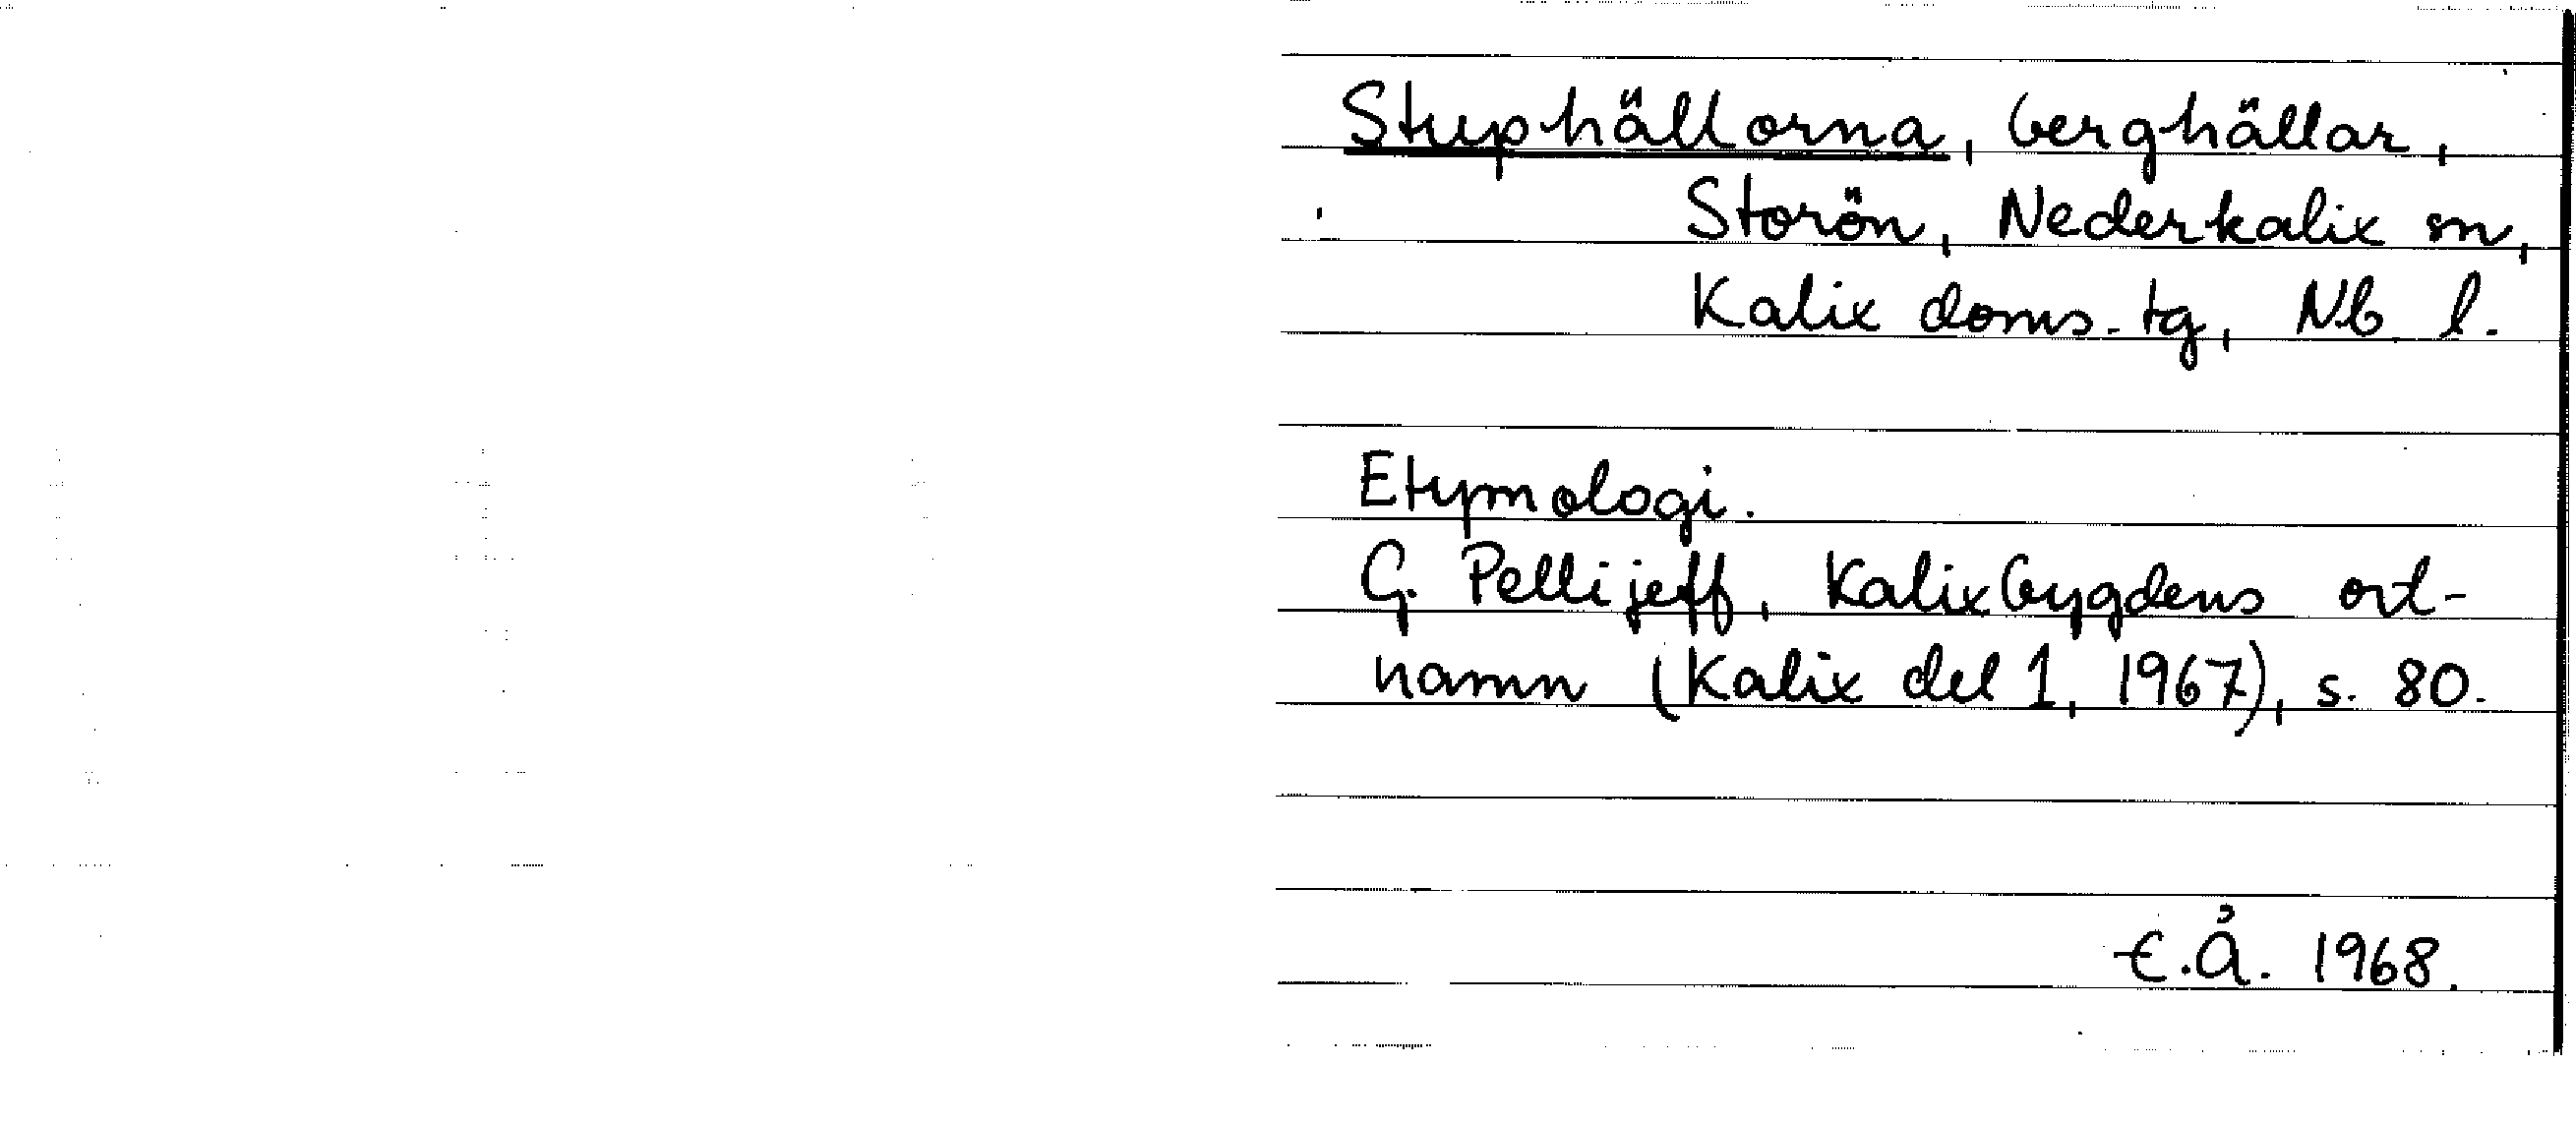 Stuphällorna, berghällar,
Storön, Nederkalix sn,
Kalix doms. tg, Nb l.
Etymologi.
G. Pellijeff, Kalixbygdens ort-
namn (Kalix del 1, 1967), s. 80.
E.Å. 1968.